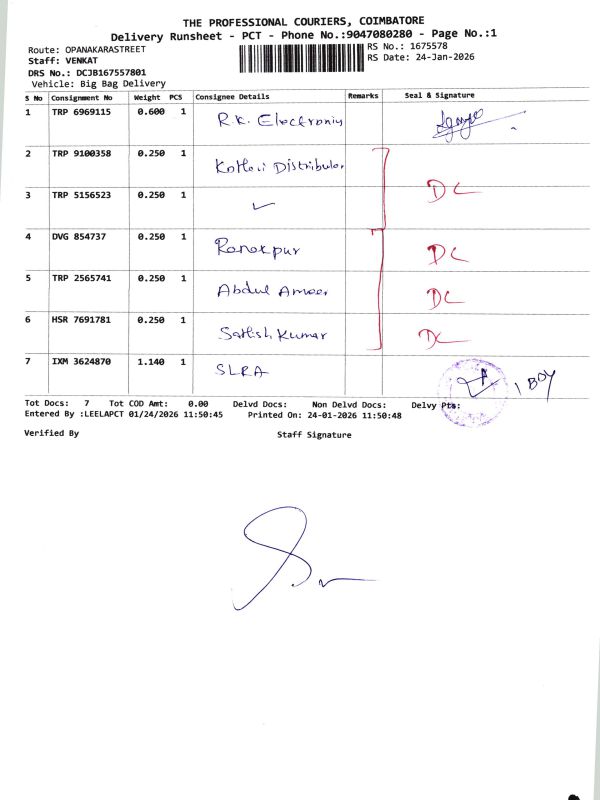 THE PROFESSIONAL COURIERS, COIMBATORE
Delivery Runsheet - PCT - Phone No.:9047080280 - Page No.:1
Route: OPANAKARASTREET
RS No.: 1675578
Staff: VENKAT
RS Date: 24-Jan-2026
DRS No.: DCJB167557801
Vehicle: Big Bag Delivery
S No Consignment No Weight PCS Consignee Details Remarks Seal & Signature
1 TRP 6969115 0.600 1 R.K. Electronix
2 TRP 9100358 0.250 1 Kothari Distributor
3 TRP 5156523 0.250 1 ✓ DC
4 DVG 854737 0.250 1 Ranakpur DC
5 TRP 2565741 0.250 1 Abdul Ameer DC
6 HSR 7691781 0.250 1 Sathish Kumar DC
7 IXM 3624870 1.140 1 SLRA
1 BOY
Tot Docs: 7 Tot COD Amt: 0.00 Delvd Docs: Non Delvd Docs: Delvy Pts:
Entered By :LEELAPCT 01/24/2026 11:50:45 Printed On: 24-01-2026 11:50:48
Verified By Staff Signature